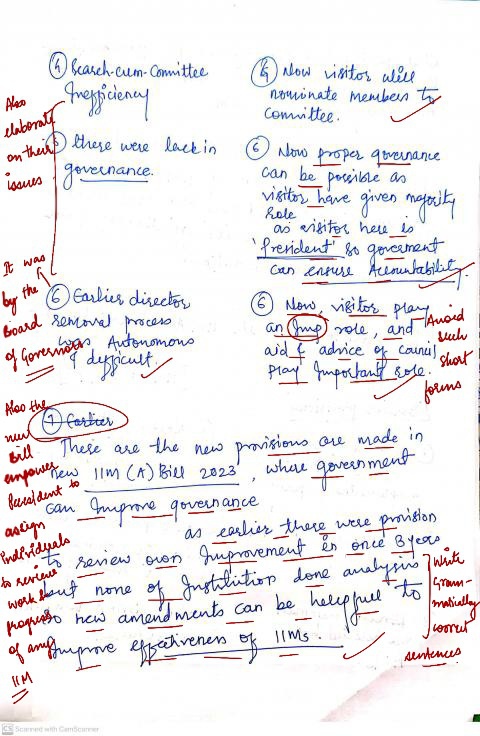 ④ Search-cum-Committee
Inefficiency
⑤ there were lack in
governance.
⑥ Earlier director
removal process
was Autonomous
& difficult.
④ Now visitor will
nominate members to
Committee.
⑥ Now proper governance
can be possible as
visitor have given majority
role
as visitor here is
'President' so goverment
can ensure Accountability.
⑥ Now, visitor play
an Imp role, and
aid & advice of council
play Important role.
⑦ Earlier
These are the new provisions are made in
new IIM (A) Bill 2023, where government
can Improve governance
as earlier there were provision
to review own Improvement is once 3 years
but none of Institution done analysis
so new amendments can be helpful to
Improve effectiveness of IIMs.
Also
elaborate
on their
issues
It was
by the
Board
of Governors
Also the
new
Bill
empower
President to
assign
individuals
to review
work &
progress
of any
IIM
Avoid
such
short
forms
Write
Gram-
matically
correct
sentences
CS Scanned with CamScanner